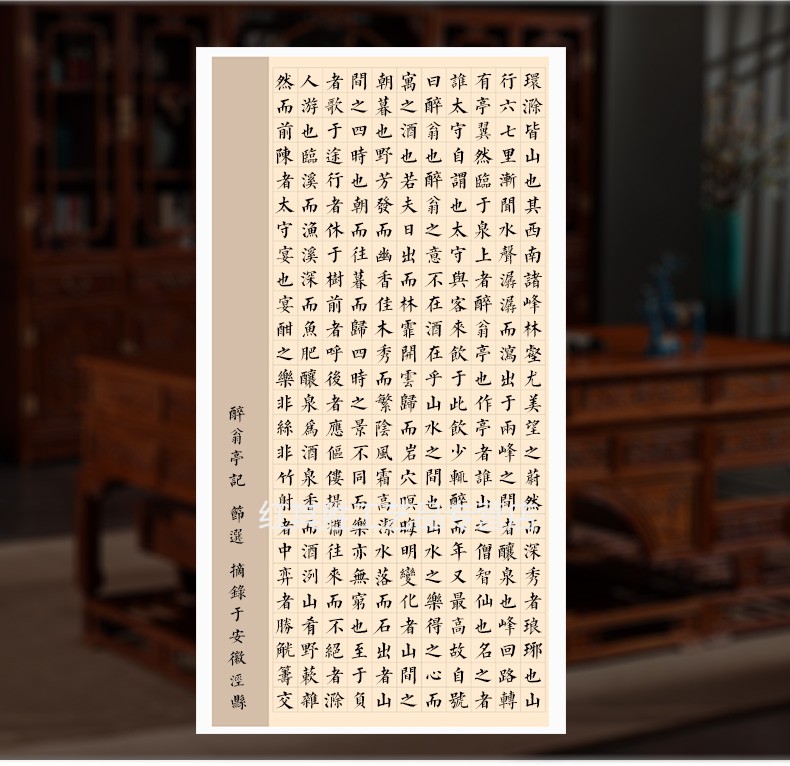 環滁皆山也其西南諸峰林壑尤美望之蔚然而深秀者琅琊也山
行六七里漸聞水聲潺潺而瀉出于兩峰之間者釀泉也峰回路轉
有亭翼然臨于泉上者醉翁亭也作亭者誰山之僧智仙也名之者
誰太守自謂也太守與客來飲于此飲少輒醉而年又最高故自號
曰醉翁也醉翁之意不在酒在乎山水之間也山水之樂得之心而
寓之酒也若夫日出而林霏開雲歸而岩穴暝晦明變化者山間之
朝暮也野芳發而幽香佳木秀而繁陰風霜高潔水落而石出者山
間之四時也朝而往暮而歸四時之景不同而樂亦無窮也至于負
者歌于途行者休于樹前者呼後者應傴僂提攜往來而不絕者滁
人游也臨溪而漁溪深而魚肥釀泉爲酒泉香而酒洌山肴野蔌雜
然而前陳者太守宴也宴酣之樂非絲非竹射者中弈者勝觥籌交
醉翁亭記 節選 摘錄于安徽涇縣